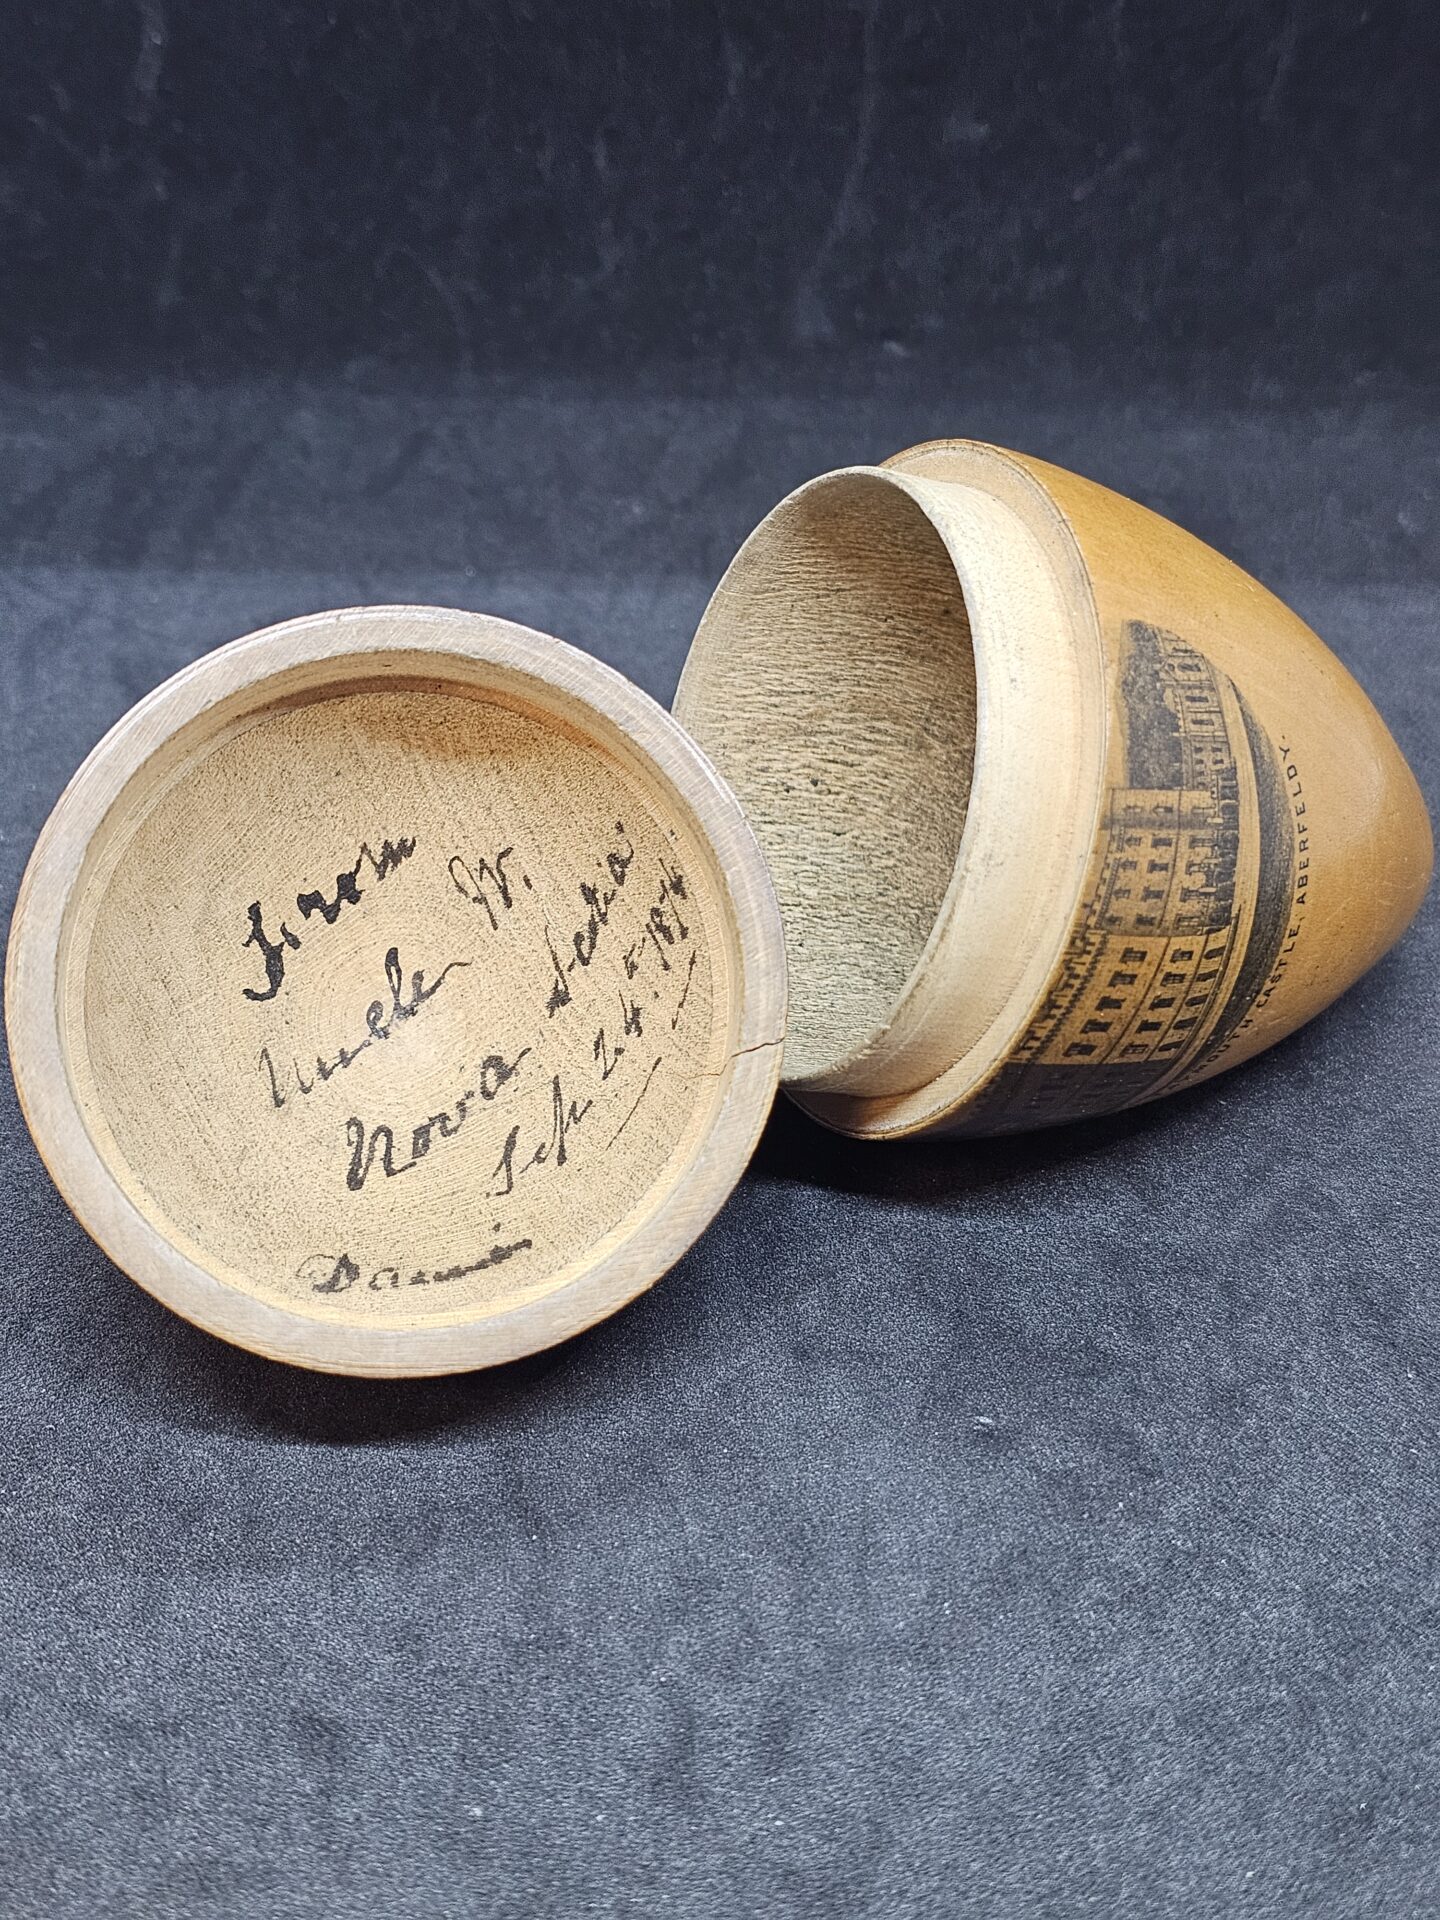 From
Uncle W.
Nova Scotia
Sep 24th 1874
MOUTH CASTLE, ABERFELDY.